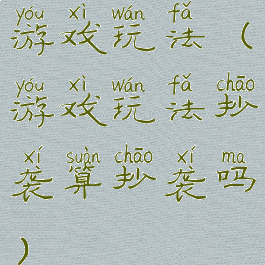 yóu xì wán fǎ
游戏玩法（
yóu xì wán fǎ chāo
游戏玩法抄
xí suàn chāo xí ma
袭算抄袭吗
）